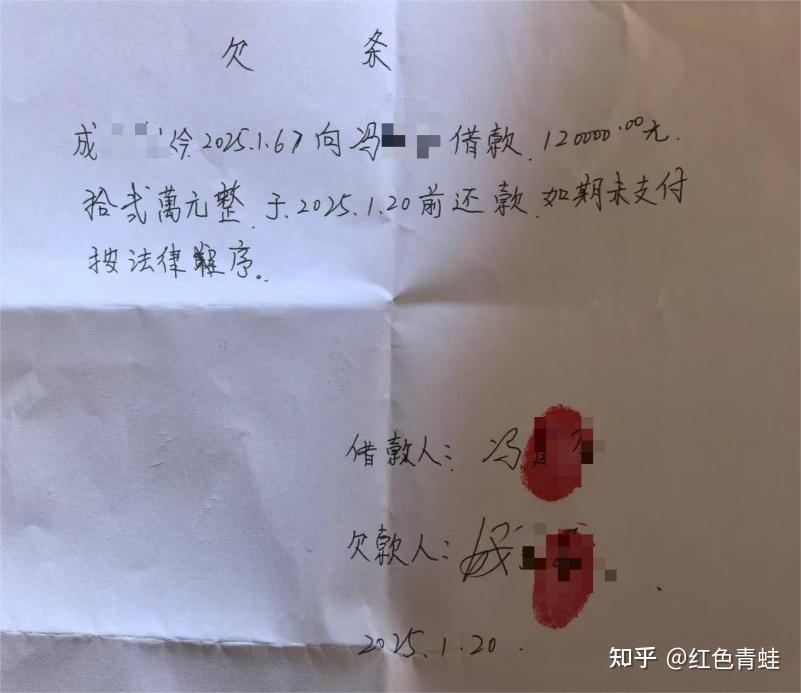 欠条
成 今2025.1.6 向冯 借款.120000.00元.
拾弍萬元整.于.2025.1.20前还款.如期未支付
按法律程序。
借款人：冯
欠款人：成
2025.1.20.
知乎 @红色青蛙